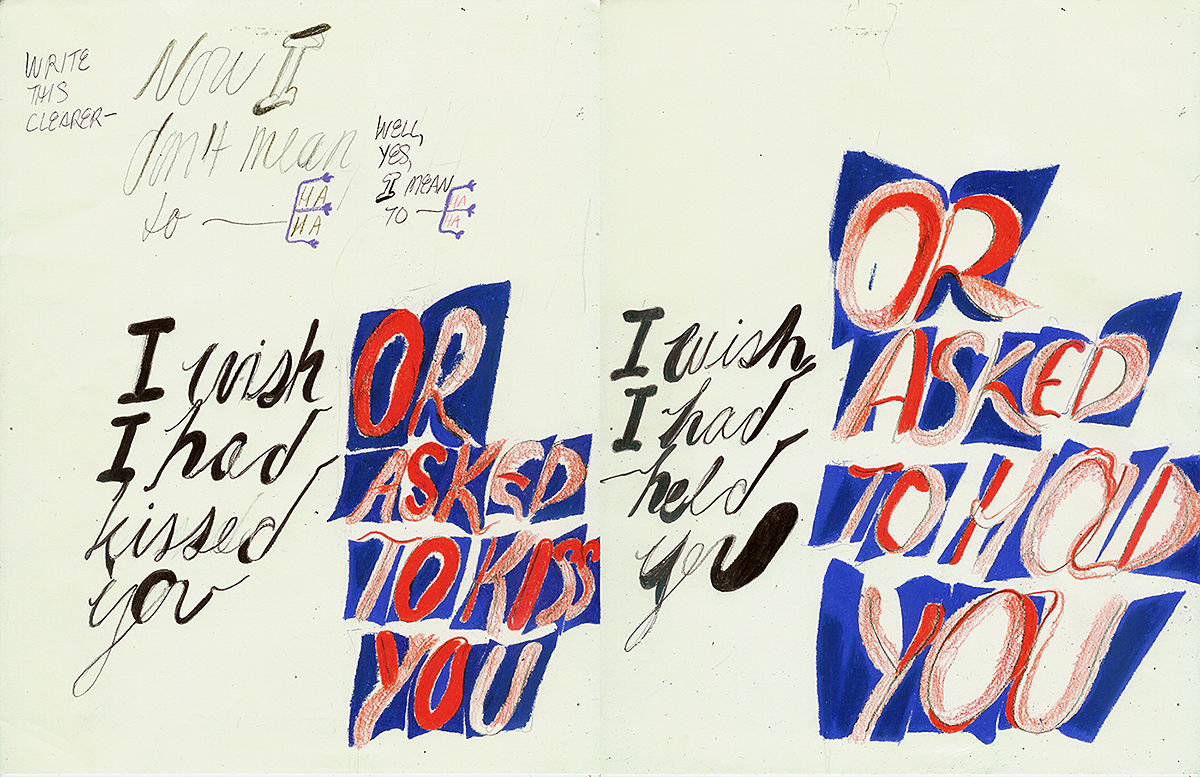 WRITE
THIS
CLEARER—
Now I
don't mean
to — HA
HA
WELL,
YES,
I MEAN
TO — HA
HA
I wish
I had
kissed
you
OR
ASKED
TO KISS
YOU
I wish
I had
held
you
OR
ASKED
TO HOLD
YOU